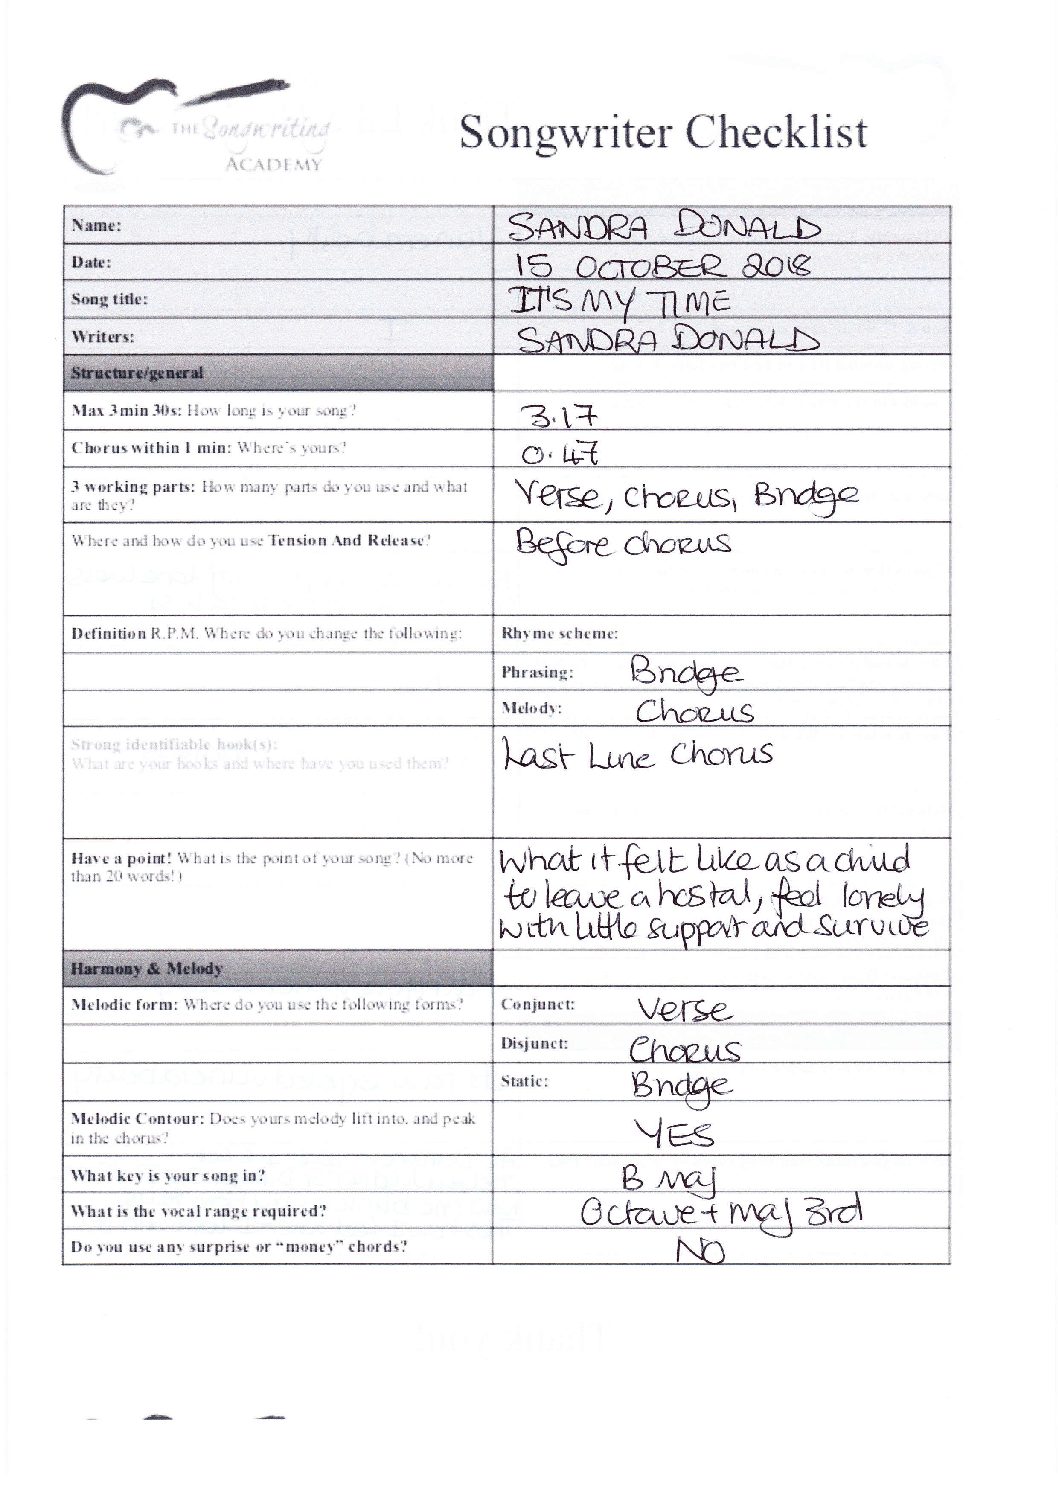 THE Songwriting
ACADEMY
Songwriter Checklist
Name: SANDRA DONALD
Date: 15 OCTOBER 2018
Song title: IT'S MY TIME
Writers: SANDRA DONALD
Structure/general
Max 3min 30s: How long is your song? 3.17
Chorus within 1 min: Where's yours? 0.47
3 working parts: How many parts do you use and what
are they?
Verse, Chorus, Bridge
Where and how do you use Tension And Release? Before chorus
Definition R.P.M. Where do you change the following: Rhyme scheme:
Phrasing: Bridge
Melody: Chorus
Strong identifiable hook(s):
What are your hooks and where have you used them?
Last Line Chorus
Have a point! What is the point of your song? (No more
than 20 words!)
What it felt like as a child
to leave a hostal, feel lonely
with little support and survive
Harmony & Melody
Melodic form: Where do you use the following forms? Conjunct: Verse
Disjunct: Chorus
Static: Bridge
Melodic Contour: Does yours melody lift into, and peak
in the chorus?
YES
What key is your song in? B Maj
What is the vocal range required? Octave + Maj 3rd
Do you use any surprise or "money" chords? NO